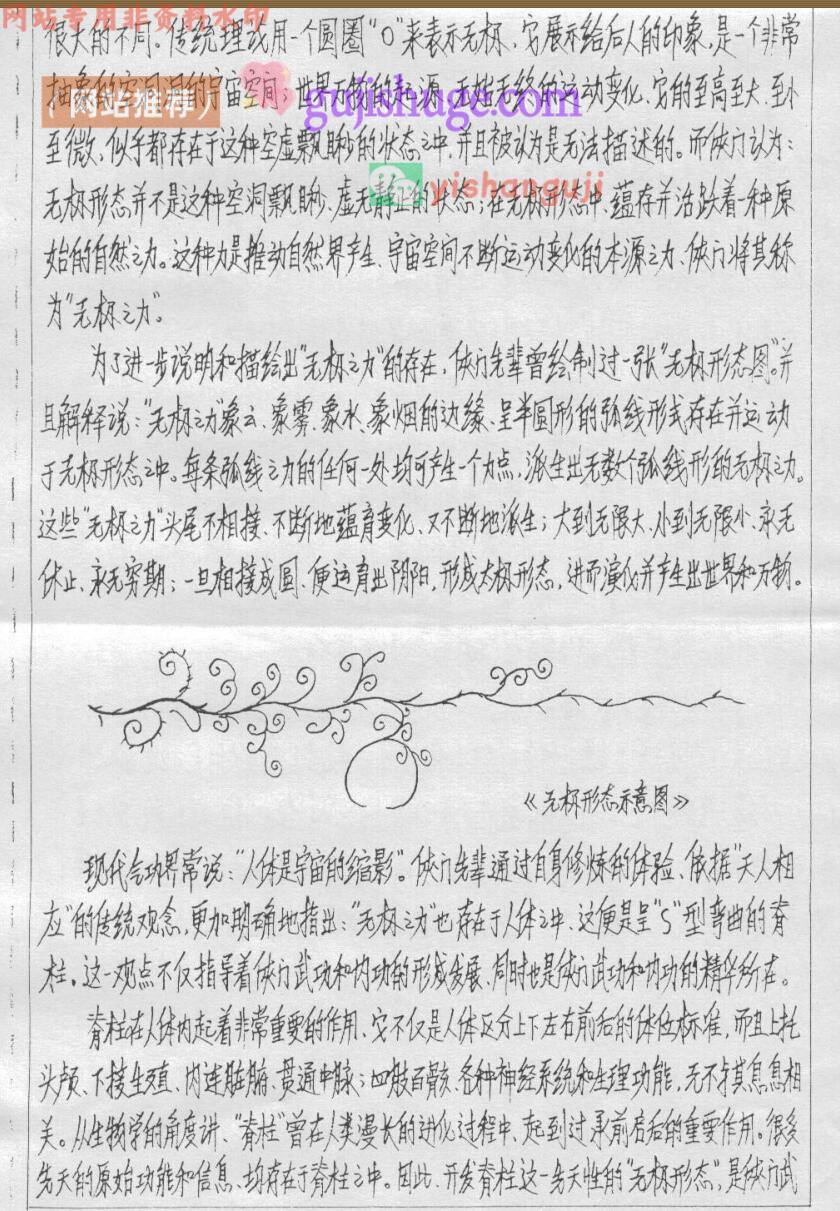 网站专用非资料水印
很大的不同。传统理论用一个圆圈“O”来表示无极、它展示给后人的印象,是一个非常
抽象的空洞洞的宇宙空间;世界万物的起源、无始无终的运动变化、它的至高至大、至小
(网站推荐)
gujishuge.com
至微、似乎都存在于这种空虚飘眇的状态之中、并且被认为是无法描述的。而侠门认为:
yishanguji
无极形态并不是这种空洞飘眇、虚无静止的状态;在无极形态中、蕴存并活跃着一种原
始的自然之力。这种力是推动自然界产生、宇宙空间不断运动变化的本源之力、侠门将其称
为“无极之力”。
为了进一步说明和描绘出“无极之力”的存在,侠门先辈曾绘制过一张“无极形态图”。并
且解释说:“无极之力”象云、象雾、象水、象烟的边缘、呈半圆形的弧线形式存在并运动
于无极形态之中。每条弧线之力的任何一处均可产生一个力点,派生出无数个弧线形的无极之力。
这些“无极之力”头尾不相接、不断地蕴育变化、又不断地派生;大到无限大、小到无限小、永无
休止、永无穷期;一旦相接成圆、便运育出阴阳,形成太极形态,进而演化并产生出世界和万物。
《无极形态示意图》
现代气功界常说:“人体是宇宙的缩影”。侠门先辈通过自身修炼的体验、依据“天人相
应”的传统观念,更加明确地指出:“无极之力”也存在于人体之中、这便是呈“S”型弯曲的脊
柱。这一观点不仅指导着侠门武功和内功的形成发展、同时也是侠门武功和内功的精华所在。
脊柱在人体内起着非常重要的作用、它不仅是人体区分上下左右前后的体位标准,而且上托
头颅、下接生殖、内连脏腑、贯通中脉;四肢百骸、各种神经系统和生理功能,无不与其息息相
关。从生物学的角度讲、“脊柱”曾在人类漫长的进化过程中、起到过承前启后的重要作用。很多
先天的原始功能和信息、均存在于脊柱之中。因此、开发脊柱这一先天性的“无极形态”,是侠门武